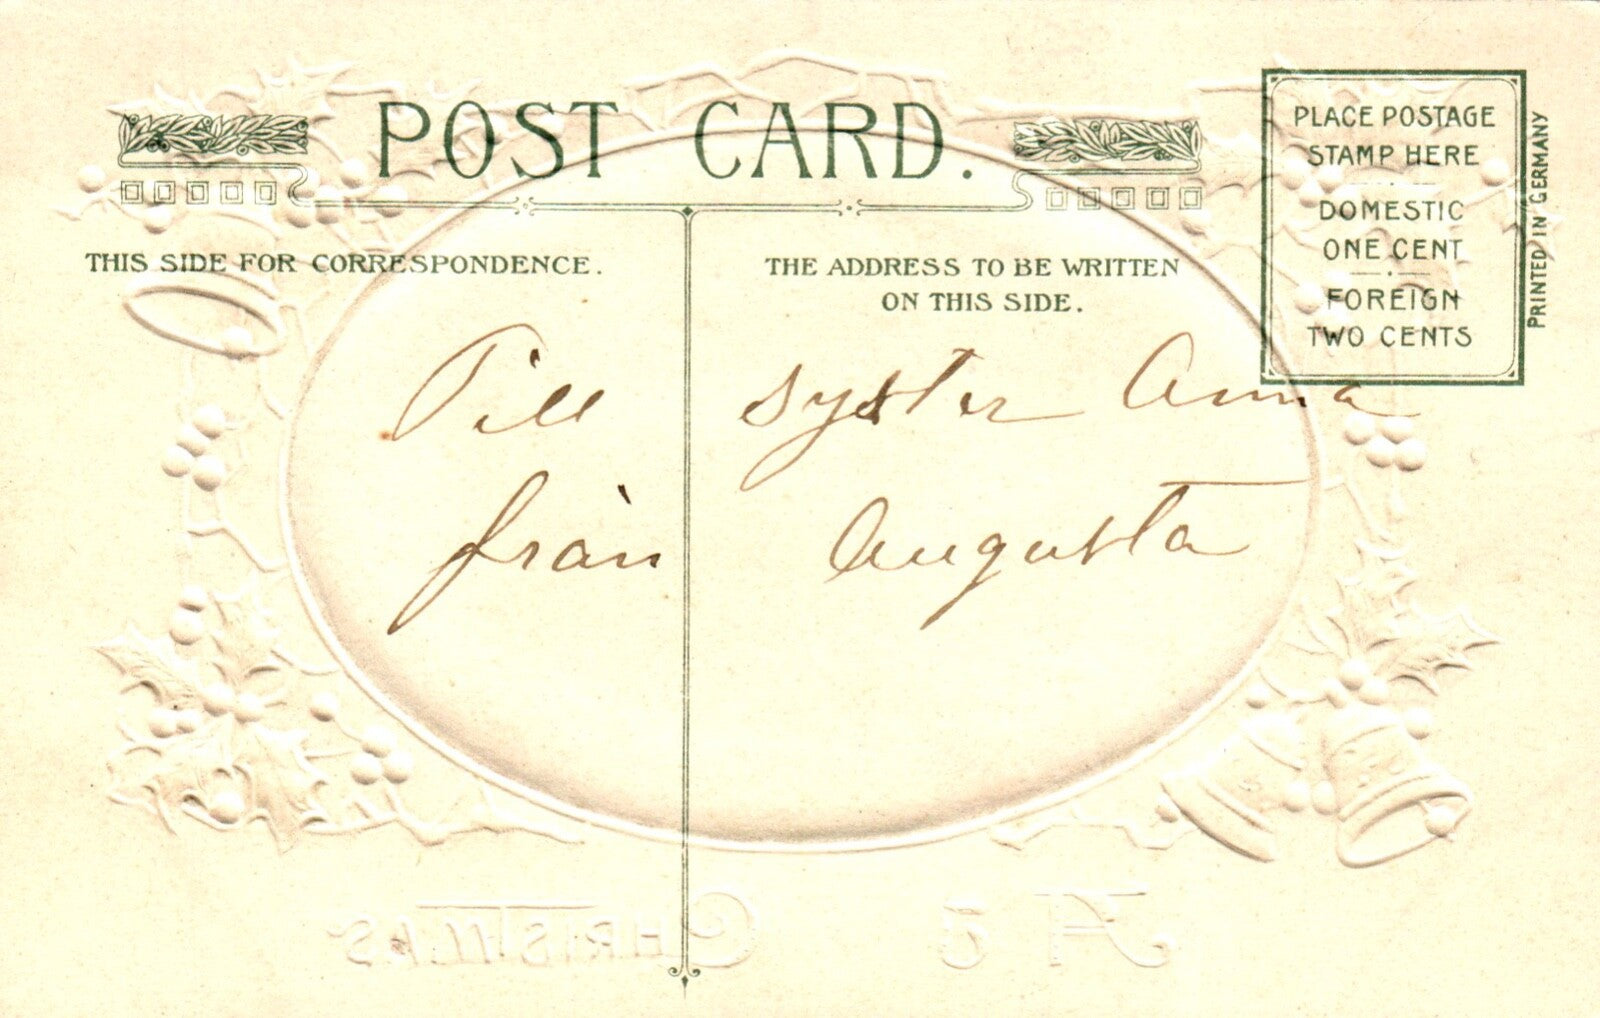 POST CARD.
THIS SIDE FOR CORRESPONDENCE.
THE ADDRESS TO BE WRITTEN
ON THIS SIDE.
PLACE POSTAGE
STAMP HERE
DOMESTIC
ONE CENT
FOREIGN
TWO CENTS
PRINTED IN GERMANY
Till syster Anna
från Augusta
A
CHRISTMAS